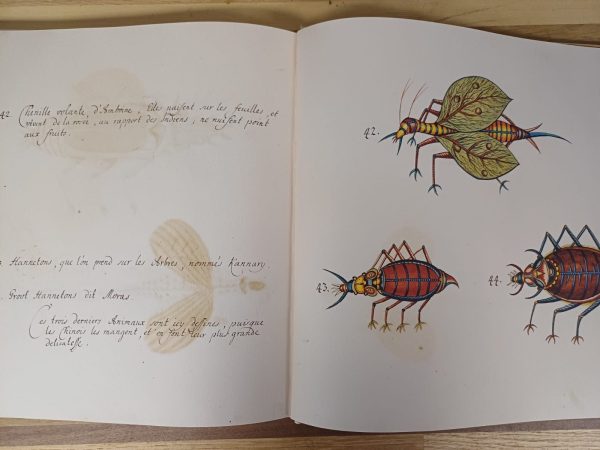 42. Chenille volante d'Amboine, Elles naissent sur les feuilles, et
vivent de la rosée, au rapport des Indiens, ne nuisent point
aux fruits.
Hannetons, que l'on prend sur les Arbres, nommés Kannary.
Groot Hannetons dit Moras.
Ces trois derniers Animaux sont icy dessines, puisque
les Chinois les mangent, et en font leur plus grande
delicatesse.
42.
43.
44.